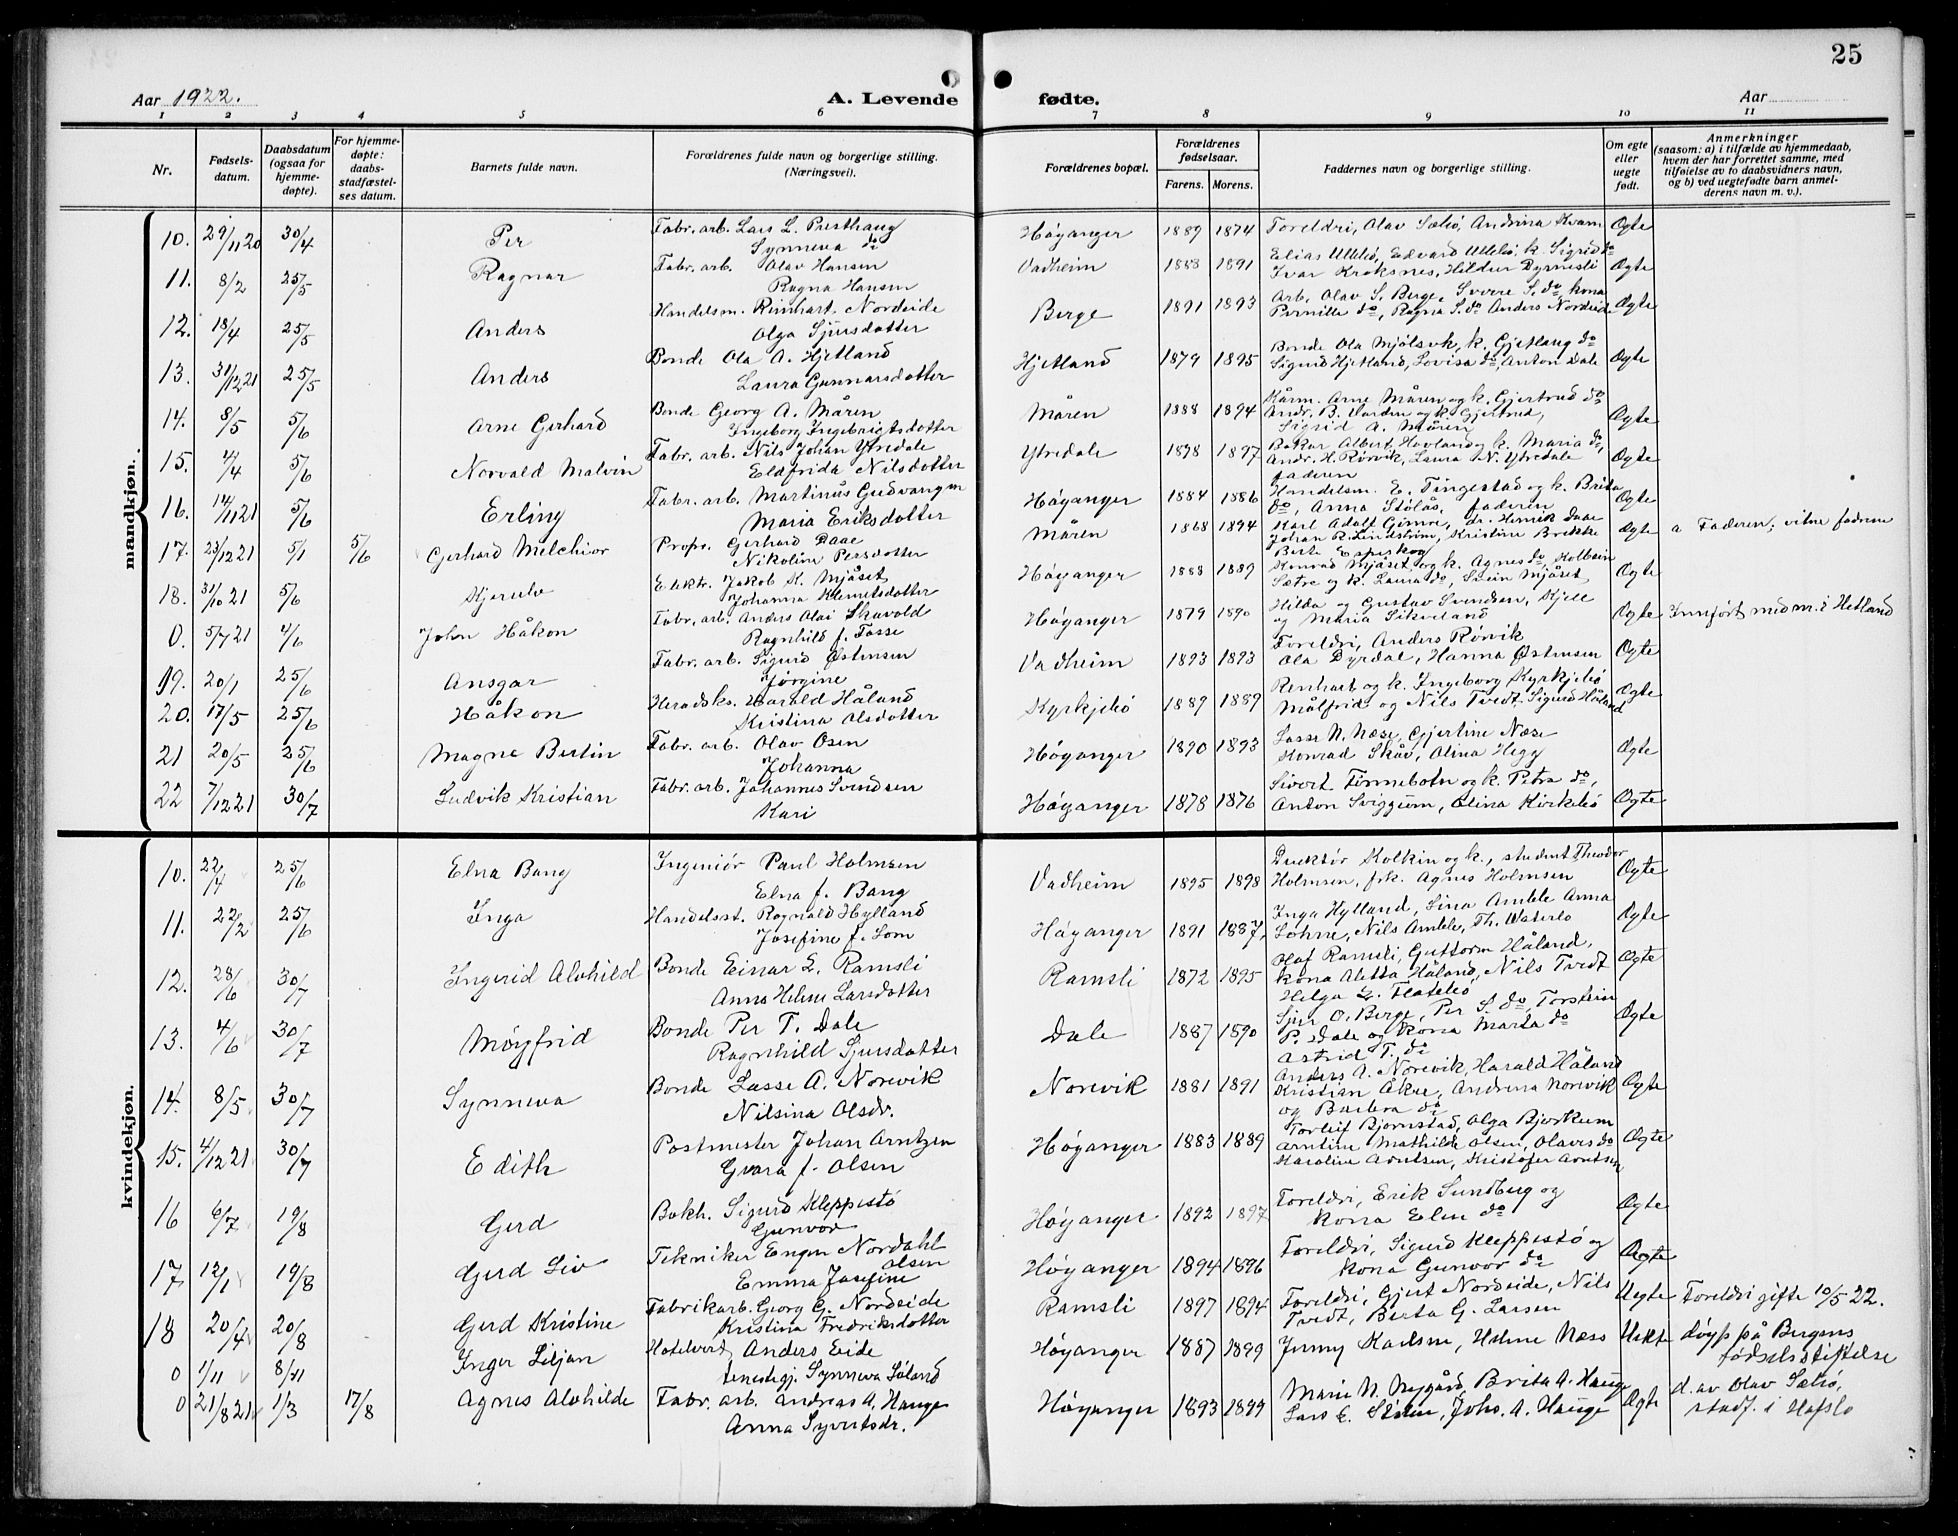 25
Aar 1922.
A. Levende fødte.
Aar
1 2 3 4 5 6 7 8 9 10 11
Nr.
Fødsels-datum.
Daabsdatum (ogsaa for hjemme-døpte).
For hjemme-døpte: daabs-stadfæstel-ses datum.
Barnets fulde navn.
Forældrenes fulde navn og borgerlige stilling. (Næringsvei).
Forældrenes bopæl.
Forældrenes fødselsaar.
Farens. Morens.
Faddernes navn og borgerlige stilling.
Om egte eller uegte født.
Anmerkninger (saasom: a) i tilfælde av hjemmedaab, hvem der har forrettet samme, med tilføielse av to daabsvidners navn, og b) ved uegtefødte barn anmel-derens navn m. v.).
mandkjøn.
10. 29/11 20 30/4 Per Fabr. arb. Lars L. Presthaug Synneva do Høyanger 1889 1874 Foreldri, Olav Sæbø, Andrina Kvam Egte
11. 8/2 25/5 Ragnar Fabr. arb. Olav Hansen Ragna Hansen Vadheim 1888 1891 Elias Ullebø, Edvard Ullebø, k. Sigrid do Ivar Kroksnes, Hildur Dyrnesli Egte
12. 18/4 25/5 Anders Handelsm. Rinhart Nordeide Olga Sjursdotter Berge 1891 1893 Arb. Olav S. Berge, Sverre S. do kona Pernille do, Ragna S. do Anders Nordeide Egte
13. 31/12 21 25/5 Anders Bonde Ola A. Hjetland Laura Gunnarsdotter Hjetland 1879 1895 Bonde Ola Mjølsvk, k. Gjetlaug do Sigurd Hjetland, Lovisa do, Anton Dale Egte
14. 8/5 5/6 Arne Gerhard Bonde Georg A. Måren Ingeborg Ingebrigtsdotter Måren 1888 1894 Kårm. Arne Måren og k. Gjertrud do Andr. B. Varden og k. Gjertrud, Sigrid A. Måren Egte
15. 4/4 5/6 Norvald Malvin Fabr. arb. Nils Johan Ytredale Eldfrida Nilsdotter Ytredale 1898 1897 Bakar Albert Hovland og k. Maria do, Andr. H. Rørvik, Laura N. Ytredale faderen Egte
16. 14/11 21 5/6 Erling Fabr. arb. Martinus Gudvangen Maria Eriksdotter Høyanger 1884 1886 Handelsm. E. Tingestad og k. Brita do, Anna Stølås, faderen Egte
17. 23/12 21 5/1 5/6 Gerhard Melchior Propr. Gerhard Daae Nikoline Persdotter Måren 1868 1894 Karl Adolf Gimre, dr. Henrik Daae Johan R. Lindstrøm, Kristine Brekke Berte Espeskog Egte a Faderen; vitne fadrene
18. 31/10 21 5/6 Kjerulv Elektr. Jakob K. Mjåset Johanna Klemetsdotter Høyanger 1888 1889 Konrad Mjåset og k. Agnes do, Kolbein Sætre og k. Laura do, Svein Mjåset Egte
0. 5/7 21 4/6 John Håkon Fabr. arb. Anders Olai Skavold Ragnhild f. Fosse Høyanger 1879 1890 Hilda og Gustav Svendsen, Kjell og Maria Sikveland Egte Innført med m. i Hetland
19. 20/1 25/6 Ansgar Fabr. arb. Sigurd Østensen Jørgine Vadheim 1893 1893 Foreldri, Anders Rørvik Ola Dyrdal, Hanna Østensen Egte
20. 17/5 25/6 Håkon Heradsks. Harald Håland Kristina Olsdotter Kyrkjebø 1889 1889 Renhart og k. Ingeborg Kyrkjebø Målfrid og Nils Tvedt Sigurd Håland Egte
21 20/5 25/6 Magne Bertin Fabr. arb. Olav Osen Johanna Høyanger 1890 1893 Lasse N. Næse, Gjertine Næse Konrad Skåv, Olina Hegg Egte
22 7/12 21 30/7 Ludvik Kristian Fabr. arb. Johannes Svendsen Kari Høyanger 1878 1876 Sivert Tønnebotn og k. Petra do, Anton Sviggum, Olina Kirkebø Egte
kvindekjøn.
10. 22/4 25/6 Elna Bang Ingeniør Paul Holmsen Elna f. Bang Vadheim 1895 1898 Direktør Kolkin og k., student Theodor Holmsen, frk. Agnes Holmsen Egte
11. 22/2 25/6 Inga Handelsst. Ragnald Hylland Josefine f. Lom Høyanger 1891 1887, Inga Hylland, Lina Amble Anna Lohne, Nils Amble, Th. Waterlo Egte
12. 28/6 30/7 Ingerid Alvhild Bonde Einar L. Ramsli Anna Helene Larsdotter Ramsli 1872 1895 Olaf Ramsli, Guttorm Håland, kona Aletta Håland, Nils Tvedt Helga L. Flatebø Egte
13. 4/6 30/7 Møyfrid Bonde Per T. Dale Ragnhild Sjursdotter Dale 1887 1890 Sjur O. Berge, Per S. do, Torstein P. Dale og kona Marta do Astrid T. do Egte
14. 8/5 30/7 Synneva Bonde Lasse A. Norevik Nilsina Olsdr. Norevik 1881 1891 Anders A. Norevik, Harald Håland Kristian Åkre, Andrina Norevik og Barbra do Egte
15. 4/12 21 30/7 Edith Postmester Johan Arntzen Gvara f. Olsen Høyanger 1883 1889 Torleif Bjørnstad, Olga Bjørkum Arntine Mathilde Olsen, Olavis do Karoline Arntsen, Kristofer Arntsen Egte
16 6/7 19/8 Gerd Bokh. Sigurd Kleppestø Gunvor Høyanger 1892 1897 Foreldri, Erik Sundberg og kona Elen do Egte
17 12/1 19/8 Gerd Liv Tekniker Engen Nordahl Olsen Emma Josefine Høyanger 1894 1896 Foreldri, Sigurd Kleppestø og kona Gunvor do Egte
18 20/4 20/8 Gerd Kristine Fabrikarb. Georg G. Nordeide Kristina Fredriksdotter Ramsli 1897 1894 Foreldri, Gjert Nordeide, Nils Tvedt, Berta G. Larsen Uegte Foreldri gifte 10/5 22.
0 1/11 8/11 Inger Liljan Hotelvert Anders Eide tenestegj. Synneva Loland Høyanger 1887 1899 Jenny Karlsen, Helene Næss Uekte døypt på Bergens fødselsstiftelse
0 21/8 21 1/3 17/8 Agnes Alvhilde Fabr. arb. Andreas A. Hauge Anna Syvertsdr. Høyanger 1893 1899 Marie N. Nygård, Brita A. Hauge Lars E. Stølen, Johs. A. Hauge Egte d. av Olav Sæbø, stadf. i Hafslo